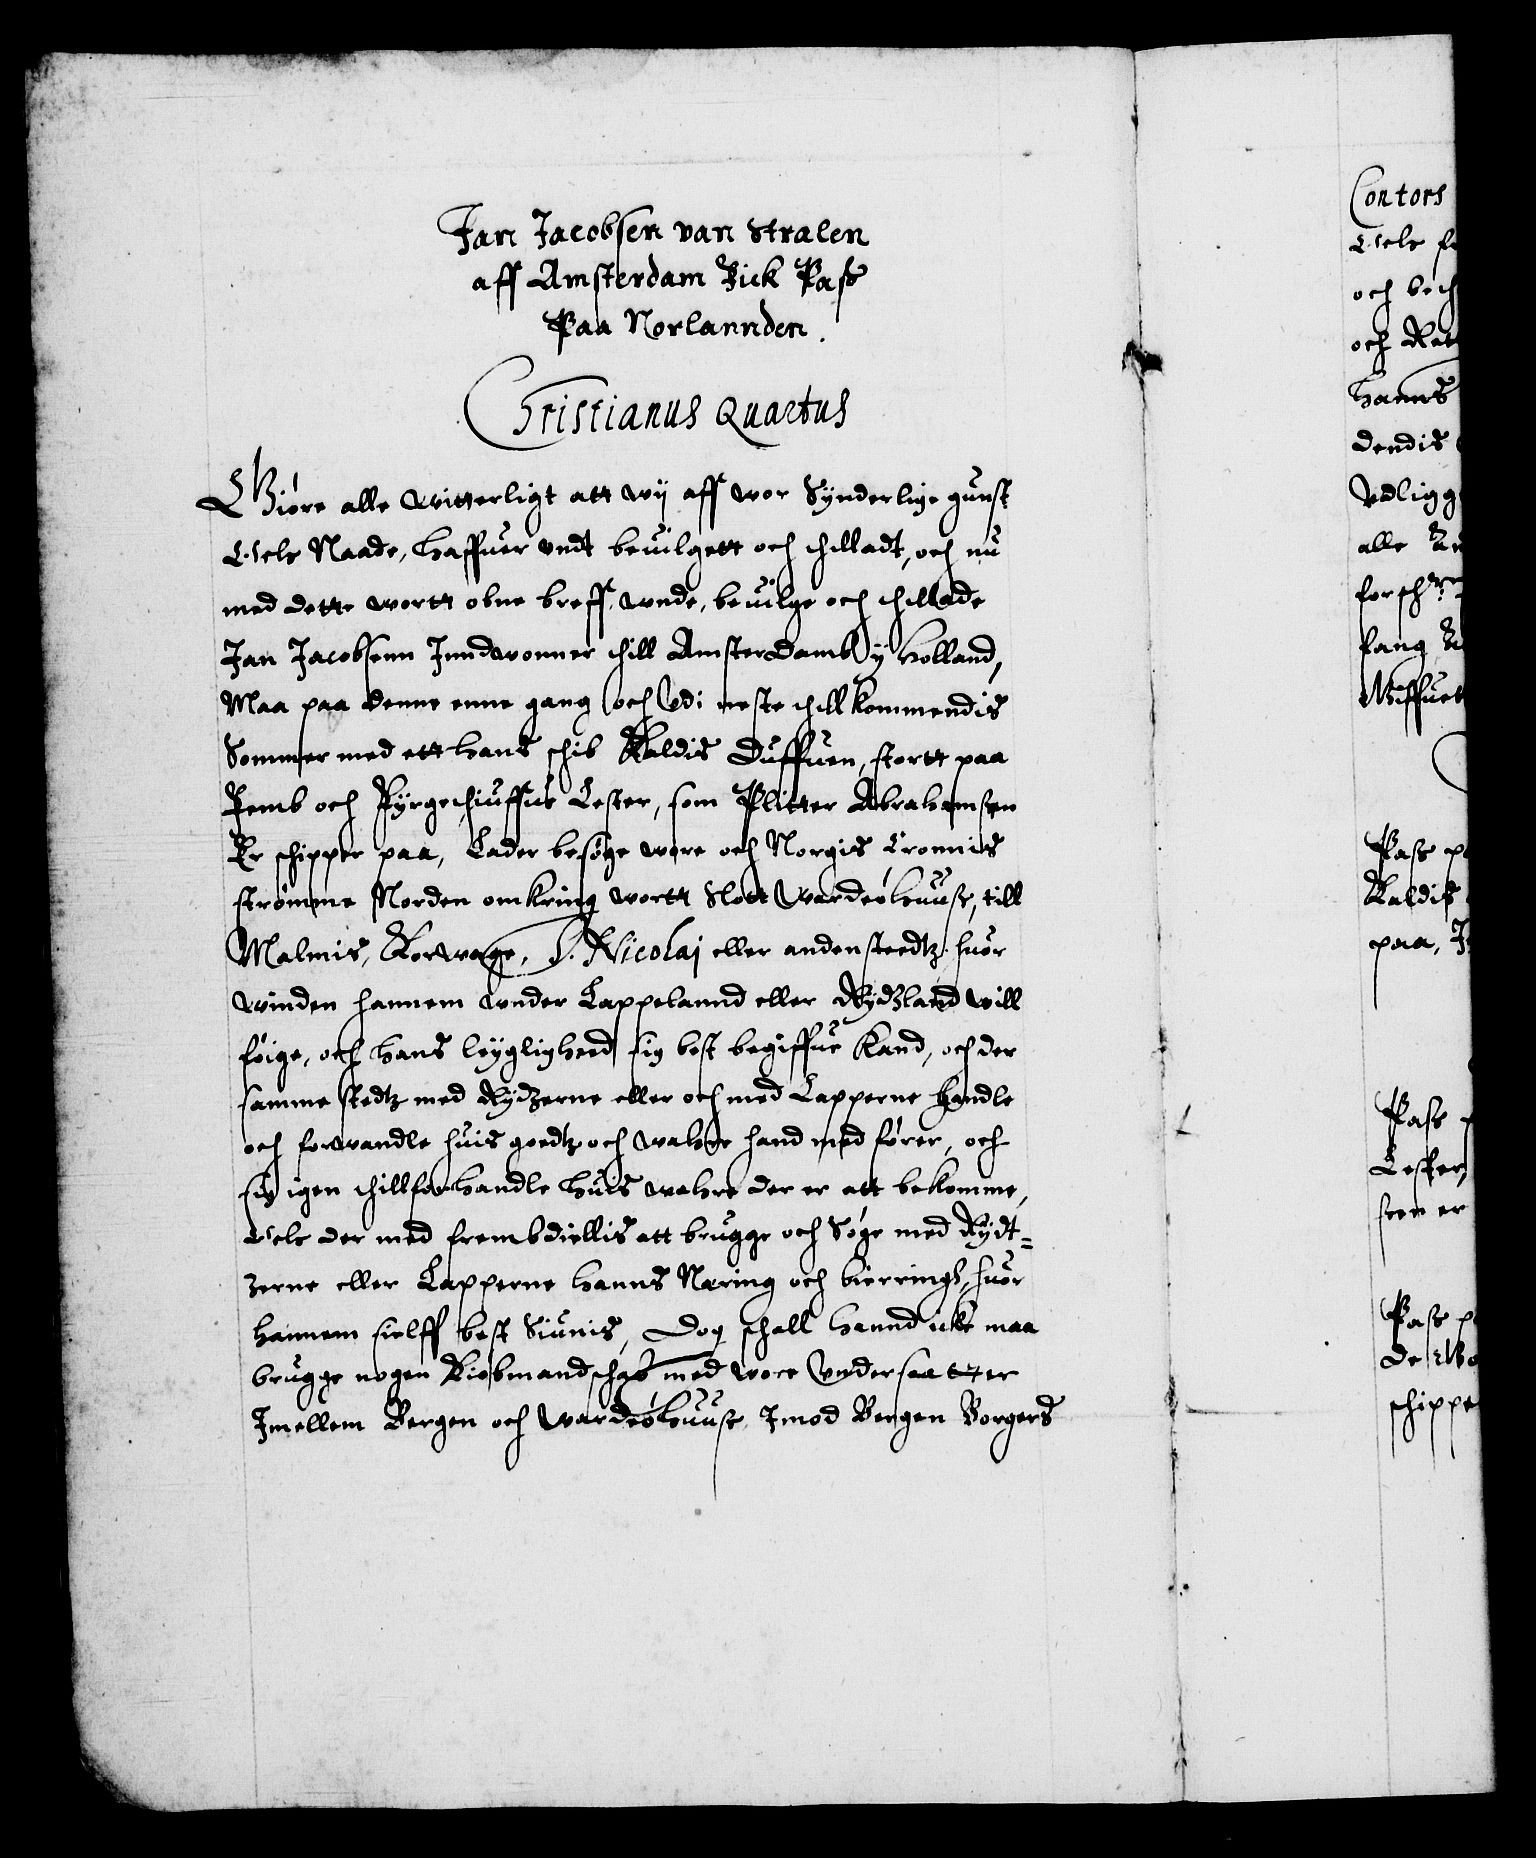 Jan Jacobsen van Stralen
aff Amsterdam Fick Pass
Paa Norlannden.
Christianus Quartus
Giøre alle witterligt att wy aff wor Synderlige gunst
och Naade, Haffuer undt beuilgett och thilladt, och nu
med dette wortt obne breff, unde, beuilge och thillade
Jan Jacobsenn Jnndwonner thill Amsterdamb y Holland,
Maa paa denne enne gang och Udi neste thillkommendis
Sommer med ett hans schib Kaldis Duffuen, stortt paa
Femb och Fyrgethiuffue Lester, som Plitter Abrahamsen
Er schipper paa, Lader besøge wore och Norgis Cronnis
strømme Norden omkring wortt Slott Wardøehuuss, till
Malmis, Korwage, S. Nicolaj eller andensteedtz huor
winden hannem under Lappelannd eller Rydzland will
føige, och hans leygligheed sig best begiffue Kand, och der
samme stedtz med Rydzerne eller och med Lapperne Handle
och forwandle huis goedtz och wahre hand med fører, och
sig igen thillforhandle huis wahre der er att bekomme,
och der med frembdiellis att brugge och Søge med Rydt=
zerne eller Lapperne hanns Næring och bierring, huor
hannem sielff best Siunis, Dog schall hannd icke maa
brugge nogen Kiøbmandschab med wore Undersaatter
Jmellem Bergen och Wardøehuuss Jmod Bergen Borgers
Contors
och
och
Hanns
dendis
Udligg
alle
fang
Pass
Kaldis
paa,
Pass
Lester,
steen er
Pass
schippe